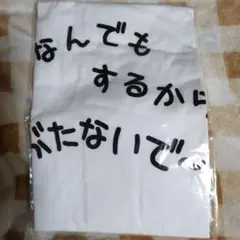 なんでも
するか
ぶたないで